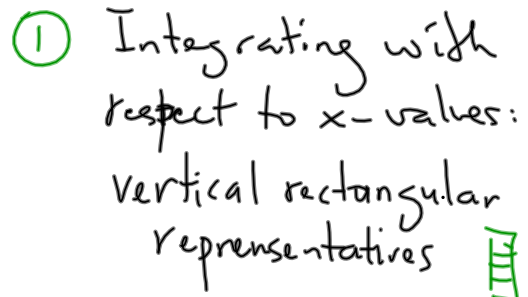 ① Integrating with
respect to x-values:
vertical rectangular
reprensentatives